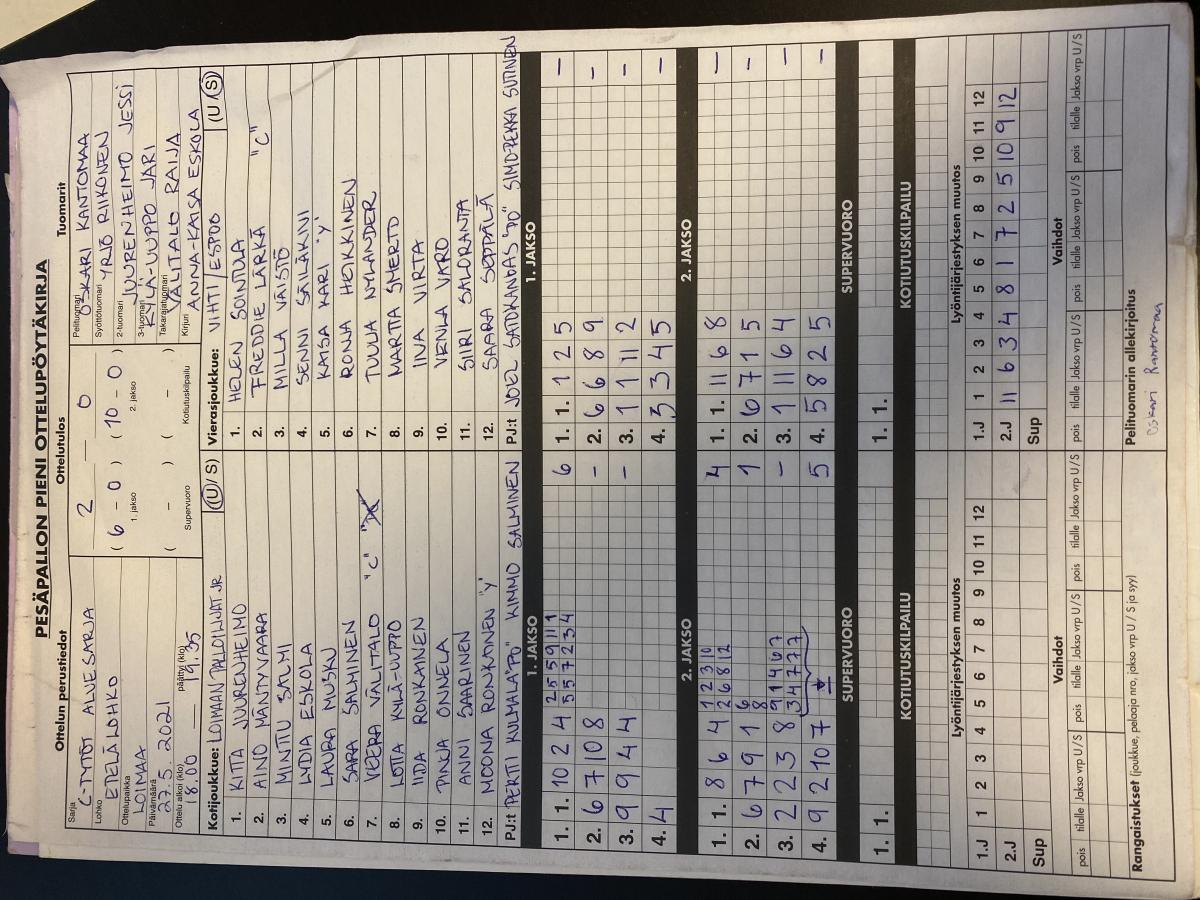 PESÄPALLON PIENI OTTELUPÖYTÄKIRJA
Ottelun perustiedot Ottelutulos Tuomarit
Sarja
C-TYTÖT ALUESARJA
Lohko
ETELÄLOHKO
Ottelupaikka
LOIMAA
Päivämäärä
27.5. 2021
Ottelu alkoi (klo) päättyi (klo)
18.00 — 19.35
2 — 0
( 6 - 0 ) ( 10 - 0 )
1. jakso 2. jakso
( - ) ( - )
Supervuoro Kotiutuskilpailu
Pelituomari
OSKARI KANTOMAA
Syöttötuomari
YRJÖ RIIKONEN
2-tuomari
JUURENHEIMO JESSI
3-tuomari
KYLÄ-UUPPO JARI
Takarajatuomari
VÄLITALO RAIJA
Kirjuri
ANNA-KAISA ESKOLA
Kotijoukkue: LOIMAN PALLOILIJAT JR (U / S)
1. KITTA JUURENHEIMO
2. AINO MÄNTYVAARA
3. MINTTU SALMI
4. LYDIA ESKOLA
5. LAURA MUSKU
6. SARA SALMINEN
7. VEERA VÄLITALO "C"
8. LOTTA KYLÄ-UUPPO
9. IIDA RONKAINEN
10. PINJA ONNELA
11. ANNI SAARINEN
12. MOONA RONKAINEN "Y"
PJ:t PERTTI KULMALA "PO" KIMMO SALMINEN
Vierasjoukkue: VIHTI/ESPOO (U / S)
1. HELEN SOINTULA
2. FREDDIE LÄRKÄ "C"
3. MILLA VÄISTÖ
4. SENNI SÄILÄKIVI
5. KAISA KARI "Y"
6. RONA HEIKKINEN
7. TUULA NYLANDER
8. MARTTA SMERTO
9. IINA VIRTA
10. VENLA VARO
11. SIIRI SALORANTA
12. SAARA SEPPÄLÄ
PJ:t JOEL SATOKANGAS "PO" SIMO-PEKKA SUTINEN
1. JAKSO 1. JAKSO
1. 1. 10 2 4 2 5 5 9 11 1 6
5 5 7 2 3 4
2. 6 7 10 8 -
3. 9 9 4 4 -
4. 4
1. 1. 1 2 5 -
2. 6 6 8 9 -
3. 1 1 11 2 -
4. 3 3 4 5 -
2. JAKSO 2. JAKSO
1. 1. 8 6 4 1 2 3 10 4
2 6 8 12
2. 6 7 9 1 6 1
8
3. 2 2 3 8 9 1 4 6 7 -
3 4 7 7 7
4. 9 2 10 7 5
1. 1. 11 6 8 -
2. 6 7 1 5 -
3. 1 11 6 4 -
4. 5 8 2 5 -
SUPERVUORO SUPERVUORO
1. 1. 1. 1.
KOTIUTUSKILPAILU KOTIUTUSKILPAILU
Lyöntijärjestyksen muutos Lyöntijärjestyksen muutos
1.J 1 2 3 4 5 6 7 8 9 10 11 12
2.J
Sup
1.J 1 2 3 4 5 6 7 8 9 10 11 12
2.J 11 6 3 4 8 1 7 2 5 10 9 12
Sup
Vaihdot Vaihdot
pois tilalle Jakso vrp U/S pois tilalle Jakso vrp U/S pois tilalle Jakso vrp U/S
pois tilalle Jakso vrp U/S pois tilalle Jakso vrp U/S pois tilalle Jakso vrp U/S
Rangaistukset (joukkue, pelaaja nro, jakso vrp U / S ja syy)
Pelituomarin allekirjoitus
Oskari Kantomaa